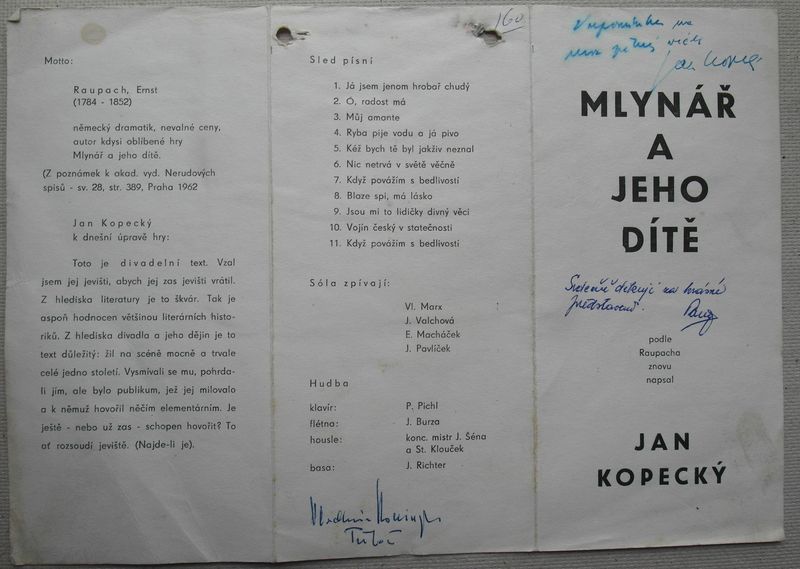 Motto:
Raupach, Ernst
(1784 - 1852)
německý dramatik, nevalné ceny,
autor kdysi oblíbené hry
Mlynář a jeho dítě.
(Z poznámek k akad. vyd. Nerudových
spisů - sv. 28, str. 389, Praha 1962
Jan Kopecký
k dnešní úpravě hry:
Toto je divadelní text. Vzal
jsem jej jevišti, abych jej zas jevišti vrátil.
Z hlediska literatury je to škvár. Tak je
aspoň hodnocen většinou literárních histo-
riků. Z hlediska divadla a jeho dějin je to
text důležitý: žil na scéně mocně a trvale
celé jedno století. Vysmívali se mu, pohrda-
li jím, ale bylo publikum, jež jej milovalo
a k němuž hovořil něčím elementárním. Je
ještě - nebo už zas - schopen hovořit? To
ať rozsoudí jeviště. (Najde-li je).
160
Sled písní
1. Já jsem jenom hrobař chudý
2. Ó, radost má
3. Můj amante
4. Ryba pije vodu a já pivo
5. Kéž bych tě byl jakživ neznal
6. Nic netrvá v světě věčně
7. Když povážím s bedlivostí
8. Blaze spi, má lásko
9. Jsou mi to lidičky divný věci
10. Vojín český v statečnosti
11. Když povážím s bedlivostí
Sóla zpívají:
Vl. Marx
J. Valchová
E. Macháček
J. Pavlíček
Hudba
klavír: P. Pichl
flétna: J. Burza
housle: konc. mistr J. Šéna
a St. Klouček
basa: J. Richter
Jan Kopecký
MLYNÁŘ
A
JEHO
DÍTĚ
Srdečně děkuji za krásné
představení.
podle
Raupacha
znovu
napsal
JAN
KOPECKÝ